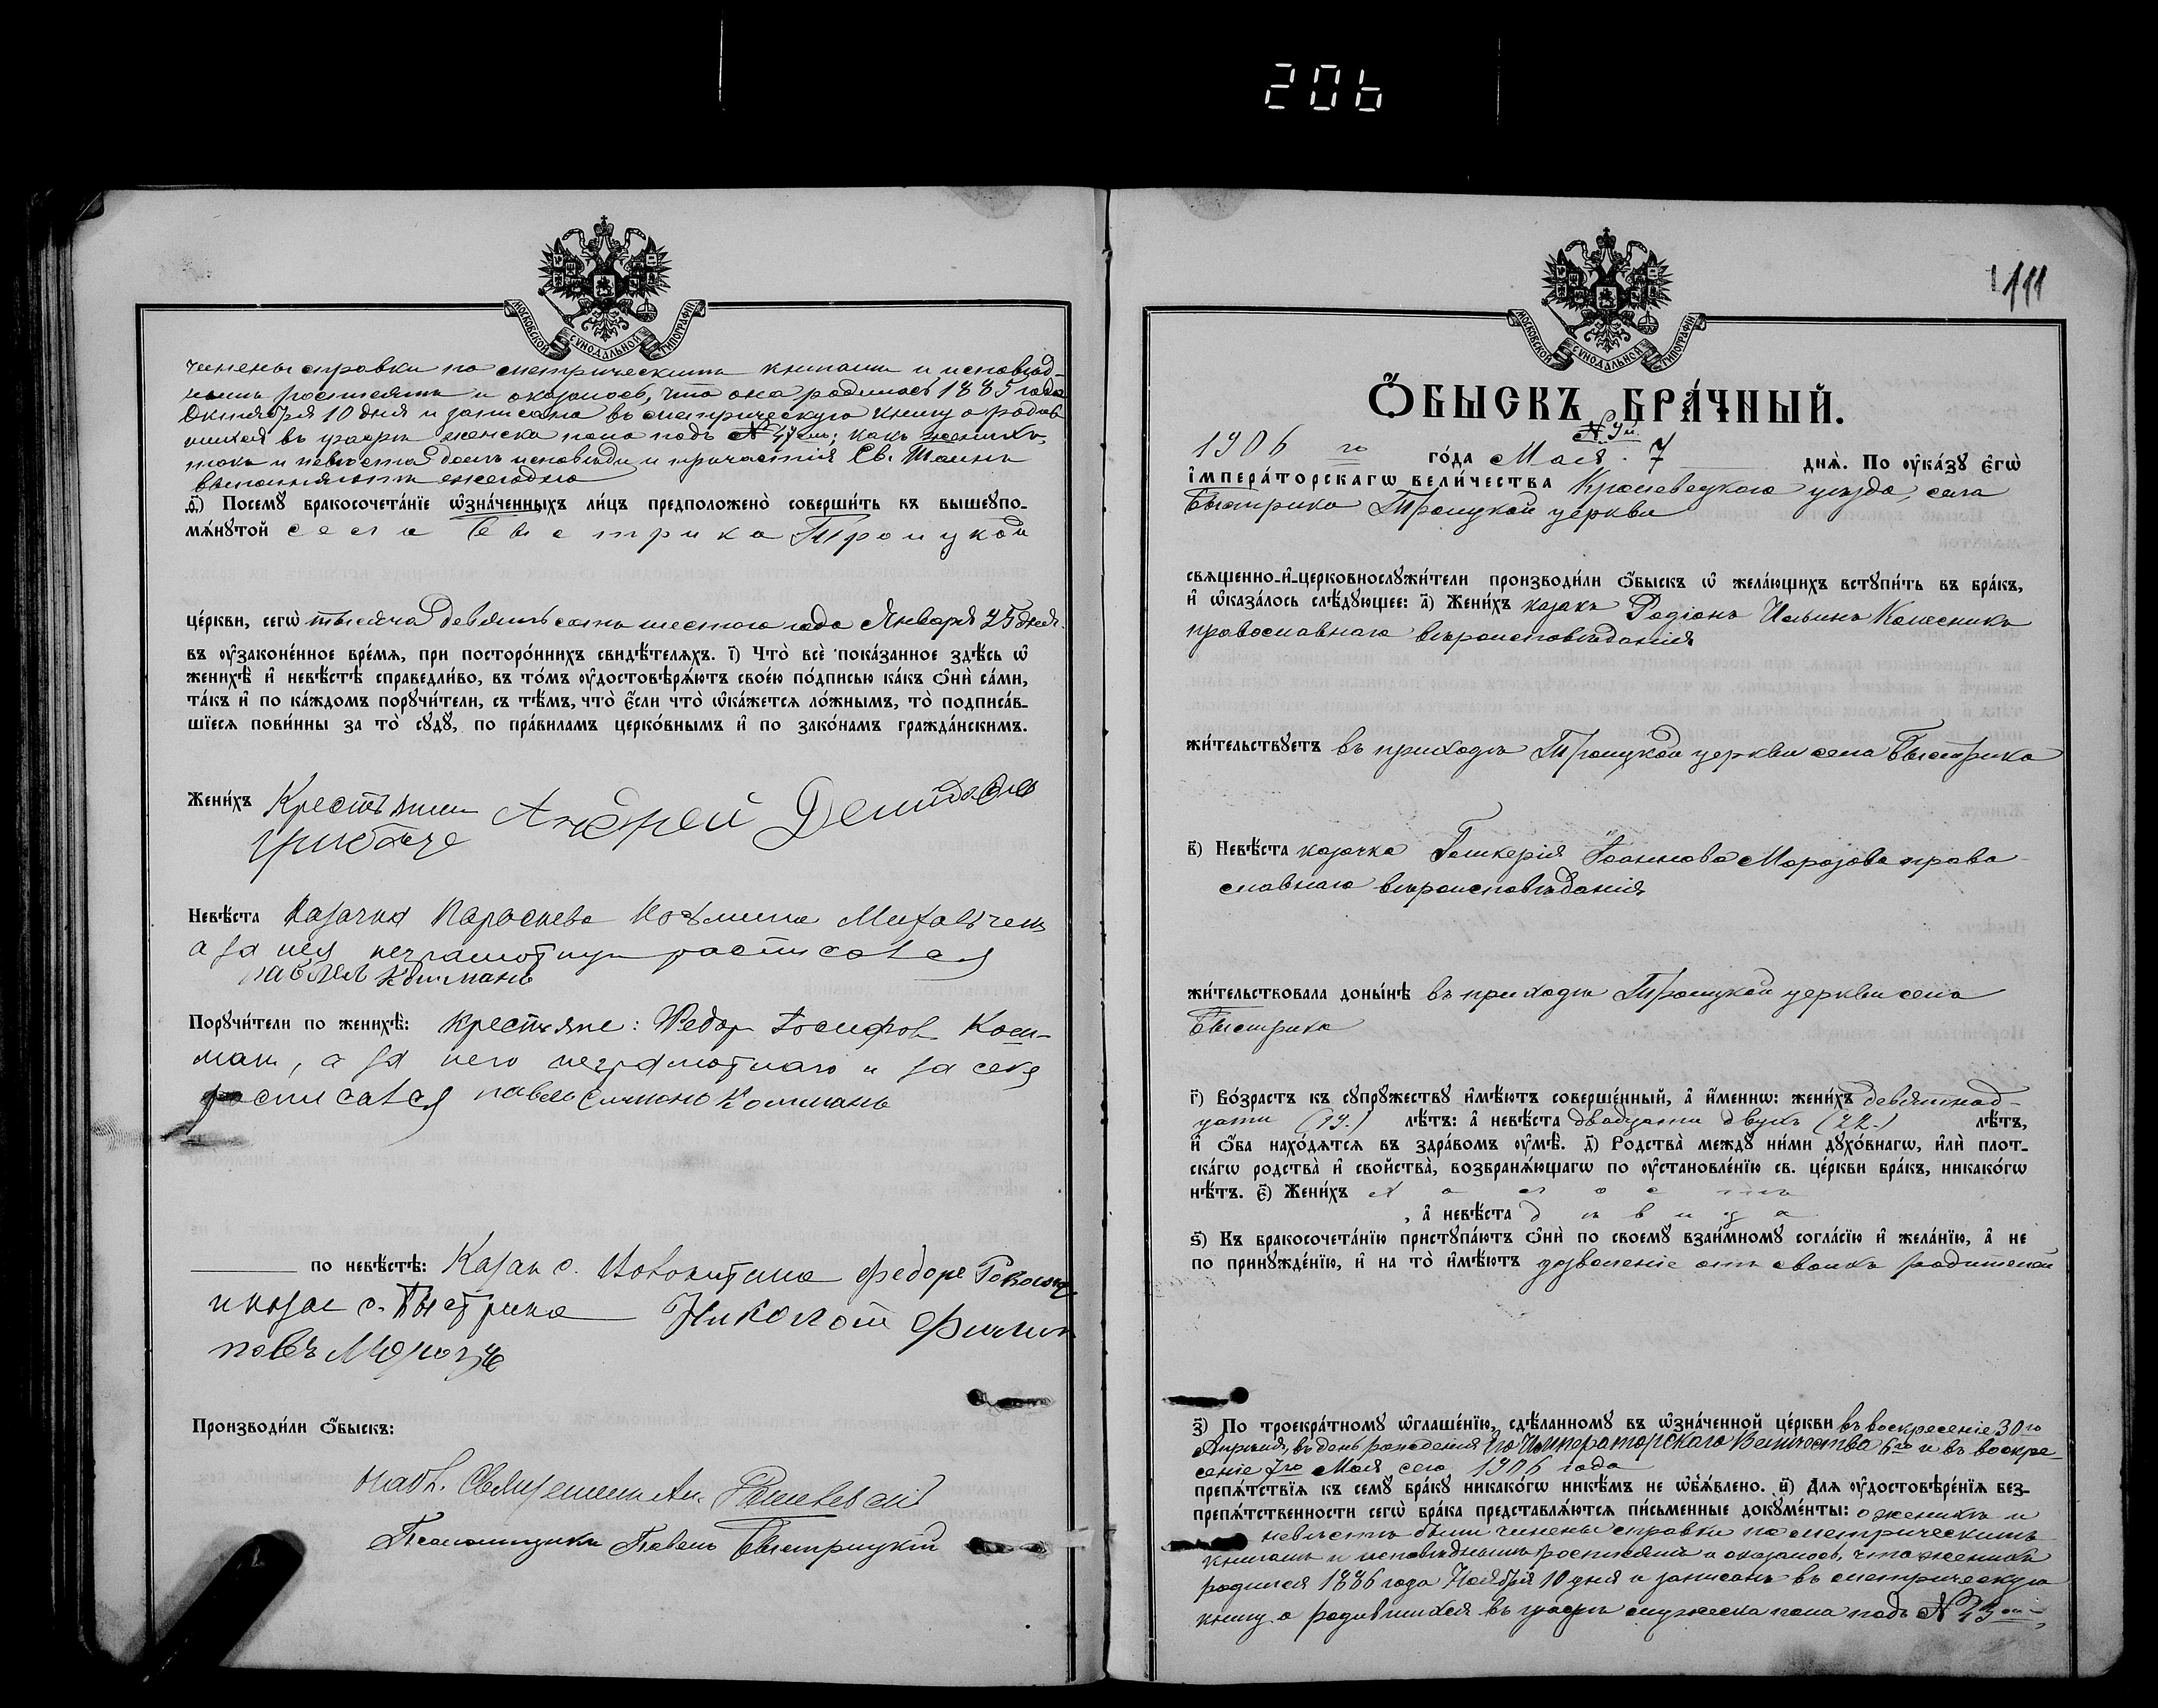 206
МОСКОВСКОЙ СѴНОДАЛЬНОЙ ТИПОГРАФІИ
чинены справки по метрическимъ книгамъ и исповѣд-
нымъ росписямъ и оказалось, что она родилась 1885 года
Октября 10 дня и записана въ метрическую книгу о родив
шихся въ графѣ женска пола подъ № 47мъ; какъ женихъ,
такъ и невѣста долгъ исповѣди и причастія Св. Таинъ
выполняютъ ежегодно
ѳ҃) Посемꙋ бракосочетáнїе ѡ҆знáченныхъ ли́цъ предположенò соверши́ть въ вышеꙋпо-
мѧ́нꙋтой села Быстрика Троицкой
цéркви, сегѡ̀ тысяча девятьсотъ шестого года Января 25 дня.
въ ᲂу҆законéнное врéмѧ, при посторóннихъ свидѣ́телѧхъ. і҃) Чтò всè покáзанное здѣ́сь ѡ҆
женихѣ̀ и҆ невѣ́стѣ справедли́во, въ тóмъ ᲂу҆достовѣрѧ́ютъ своéю пóдписью кáкъ ѻ҆нѝ сáми,
тáкъ и҆ по кáждомъ порꙋчи́тели, съ тѣ́мъ, чтò є҆́сли чтò ѡ҆кáжетсѧ лóжнымъ, тò подписáв-
шїесѧ пови́нны за тò сꙋдꙋ̀, по прáвиламъ церкóвнымъ и҆ по закóнамъ граждáнскимъ.
Жени́хъ Крестьянин Андрей
Невѣ́ста Казачка Параскева Козьмина
а за нея неграмотную росписался
Павел Кошманъ
Порꙋчи́тели по женихѣ̀: Крестьяне: Федор Іосифов Кош-
ман, а за него неграмотнаго и за себя
росписался Павелъ Кошманъ
по невѣ́стѣ: Казак с. Федоръ
и казак с. Быстрика Николай Филип
повъ Мороз
Производи́ли ѻ҆́быскъ:
Священникъ
Псаломщикъ Павелъ Быстрицкій
111
МОСКОВСКОЙ СѴНОДАЛЬНОЙ ТИПОГРАФІИ
Ѻ҆́БЫСКЪ БРÁЧНЫЙ.
№ 9й.
1906 го гóда Мая 7 днѧ̀. По ᲂу҆кáзꙋ є҆гѡ̀
і҆мперáторскагѡ вели́чества Кролевецкаго уѣзда, села
Быстрика Троицкой церкви
свѧщенно-и҆-церковнослꙋжи́тели производи́ли ѻ҆́быскъ ѡ҆ желáющихъ встꙋпи́ть въ брáкъ,
и҆ ѡ҆казáлось слѣ́дꙋющее: а҃) Жени́хъ казакъ Родіонъ Ильинъ Колесникъ
православнаго вѣроисповѣданія
жи́тельствꙋетъ въ приходѣ Троицкой церкви села Быстрика
в҃) Невѣ́ста казачка Гликерія Іоаннова Морозова право-
славнаго вѣроисповѣданія
жи́тельствовала доны́нѣ въ приходѣ Троицкой церкви села
Быстрика
г҃) Вóзрастъ къ сꙋпрꙋ́жествꙋ и҆мѣ́ютъ совершéнный, а҆̀ и҆́меннѡ: жени́хъ девятнад-
цати (19.) лѣ́тъ: а҆̀ невѣ́ста двадцати двухъ (22.) лѣ́тъ,
и҆ ѻ҆́ба нахóдѧтсѧ въ здрáвомъ ᲂу҆мѣ̀. д҃) Родствà междꙋ̀ ни́ми дꙋхóвнагѡ, и҆лѝ плот-
скáгѡ родствà и҆ свойствà, возбранѧ́ющагѡ по ᲂу҆становлéнїю св. цéркви брáкъ, никакóгѡ
нѣ́тъ. є҃) Жени́хъ холостъ
, а҆̀ невѣ́ста дѣвица
ѕ҃) Къ бракосочетáнїю пристꙋпáютъ ѻ҆нѝ по своемꙋ̀ взаи́мномꙋ соглáсїю и҆ желáнїю, а҆̀ не
по принꙋждéнїю, и҆ на тò и҆мѣ́ютъ дозволеніе отъ своихъ родителей
з҃) По троекрáтномꙋ ѡ҆глашéнїю, сдѣ́ланномꙋ въ ѡ҆знáченной цéркви въ воскресеніе 30го
Апрѣля, въ день рожденія Его Императорскаго Величества 6го и въ воскре-
сеніе 7го Мая сего 1906 года
препѧ́тствїѧ къ семꙋ̀ брáкꙋ никакóгѡ никѣ́мъ не ѡ҆б̾ѧ́влено. и҃) Длѧ ᲂу҆достовѣрéнїѧ без-
препѧ́тственности сегѡ̀ брáка представлѧ́ютсѧ пи́сьменные докꙋмéнты: о женихѣ и
невѣстѣ были чинены справки по метрическимъ
книгамъ и исповѣднымъ росписямъ и оказалось, что женихъ
родился 1886 года Ноября 10 дня и записанъ въ метрическую
книгу о родившихся въ графѣ мужеска пола подъ №